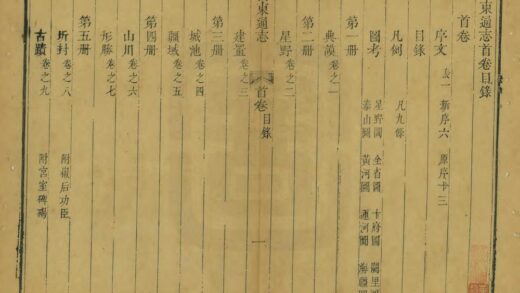 東通志首卷目錄
首卷
序文 表一 新序六 原序十三
目錄
凡例 凡九條
圖考 星野圖 全省圖 十府圖 闕里圖
泰山圖 黃河圖 運河圖 海疆圖
第一册
典謨 卷之一
第二册
星野 卷之二
首卷目錄
一
建置 卷之三
第三册
城池 卷之四
疆域 卷之五
第四册
山川 卷之六
形勝 卷之七
第五册
圻封 卷之八 附嶽后功臣
古蹟 卷之九 附宮室碑碣